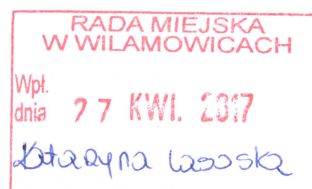 RADA MIEJSKA
W WILAMOWICACH
Wpł.
dnia 27 KWI. 2017
Katarzyna